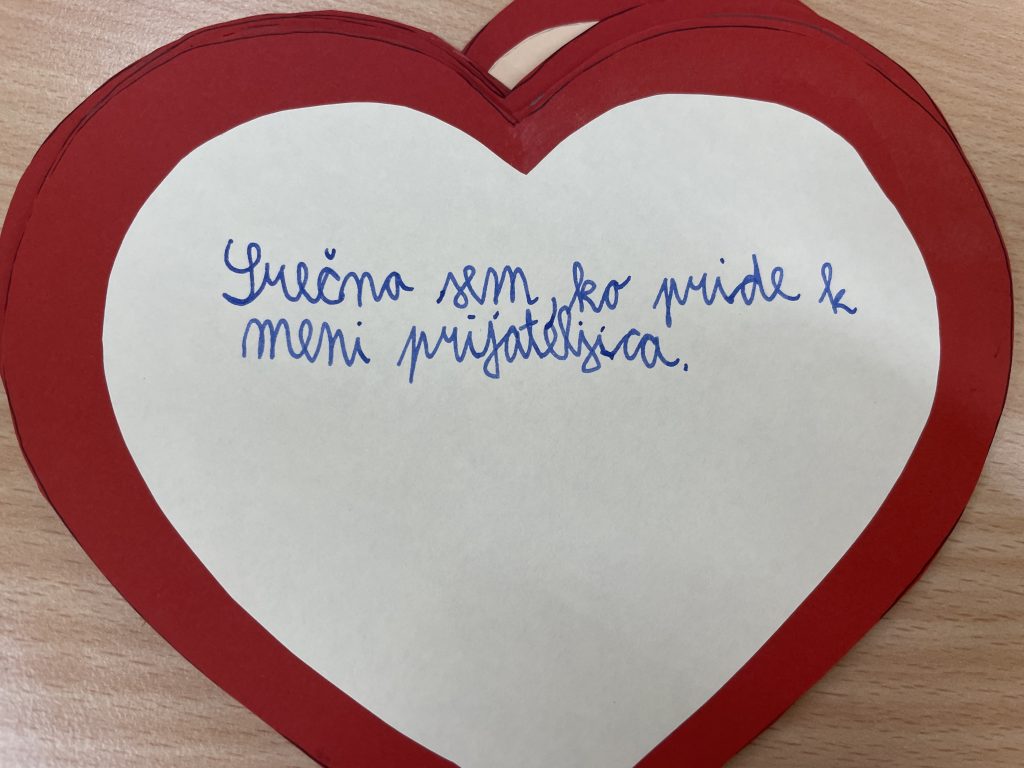 Srečna sem, ko pride k
meni prijateljica.